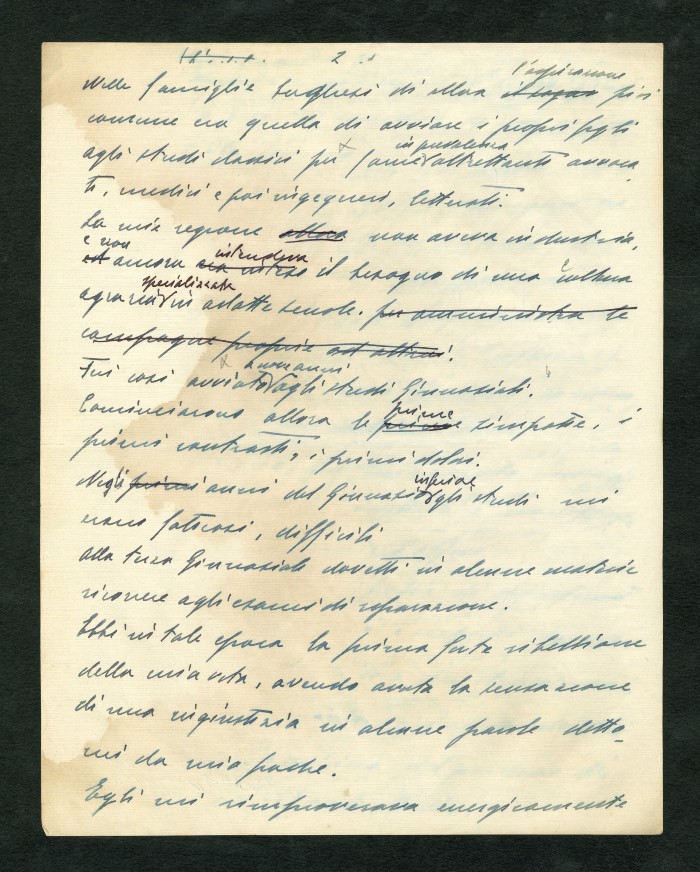 2
l'aspirazione
Nelle famiglie borghesi di allora il sogno più
comune era quella di avviare i propri figli
in prevalenza
agli studi classici per farne altrettanti avvoca
ti, medici e poi ingegneri, letterati.
La mia regione allora non aveva industria,
e non intendeva
ancora il bisogno di una cultura
specializzata
agraria in adatte scuole. per amministrare le
campagne proprie ed altrui.
a nove anni
Fui così avviato agli studi Ginnasiali.
prime
Cominciarono allora le prime simpatie, i
primi contrasti, i primi dolori.
inferiore
Negli primi anni del Ginnasio gli studi mi
erano faticosi, difficili
Alla terza Ginnasiale dovetti in alcune materie
ricorrere agli esami di riparazione.
Ebbi in tale epoca la prima forte ribellione
della mia vita, avendo avuta la sensazione
di una ingiustizia in alcune parole detto-
mi da mio padre.
Egli mi rimproverava energicamente